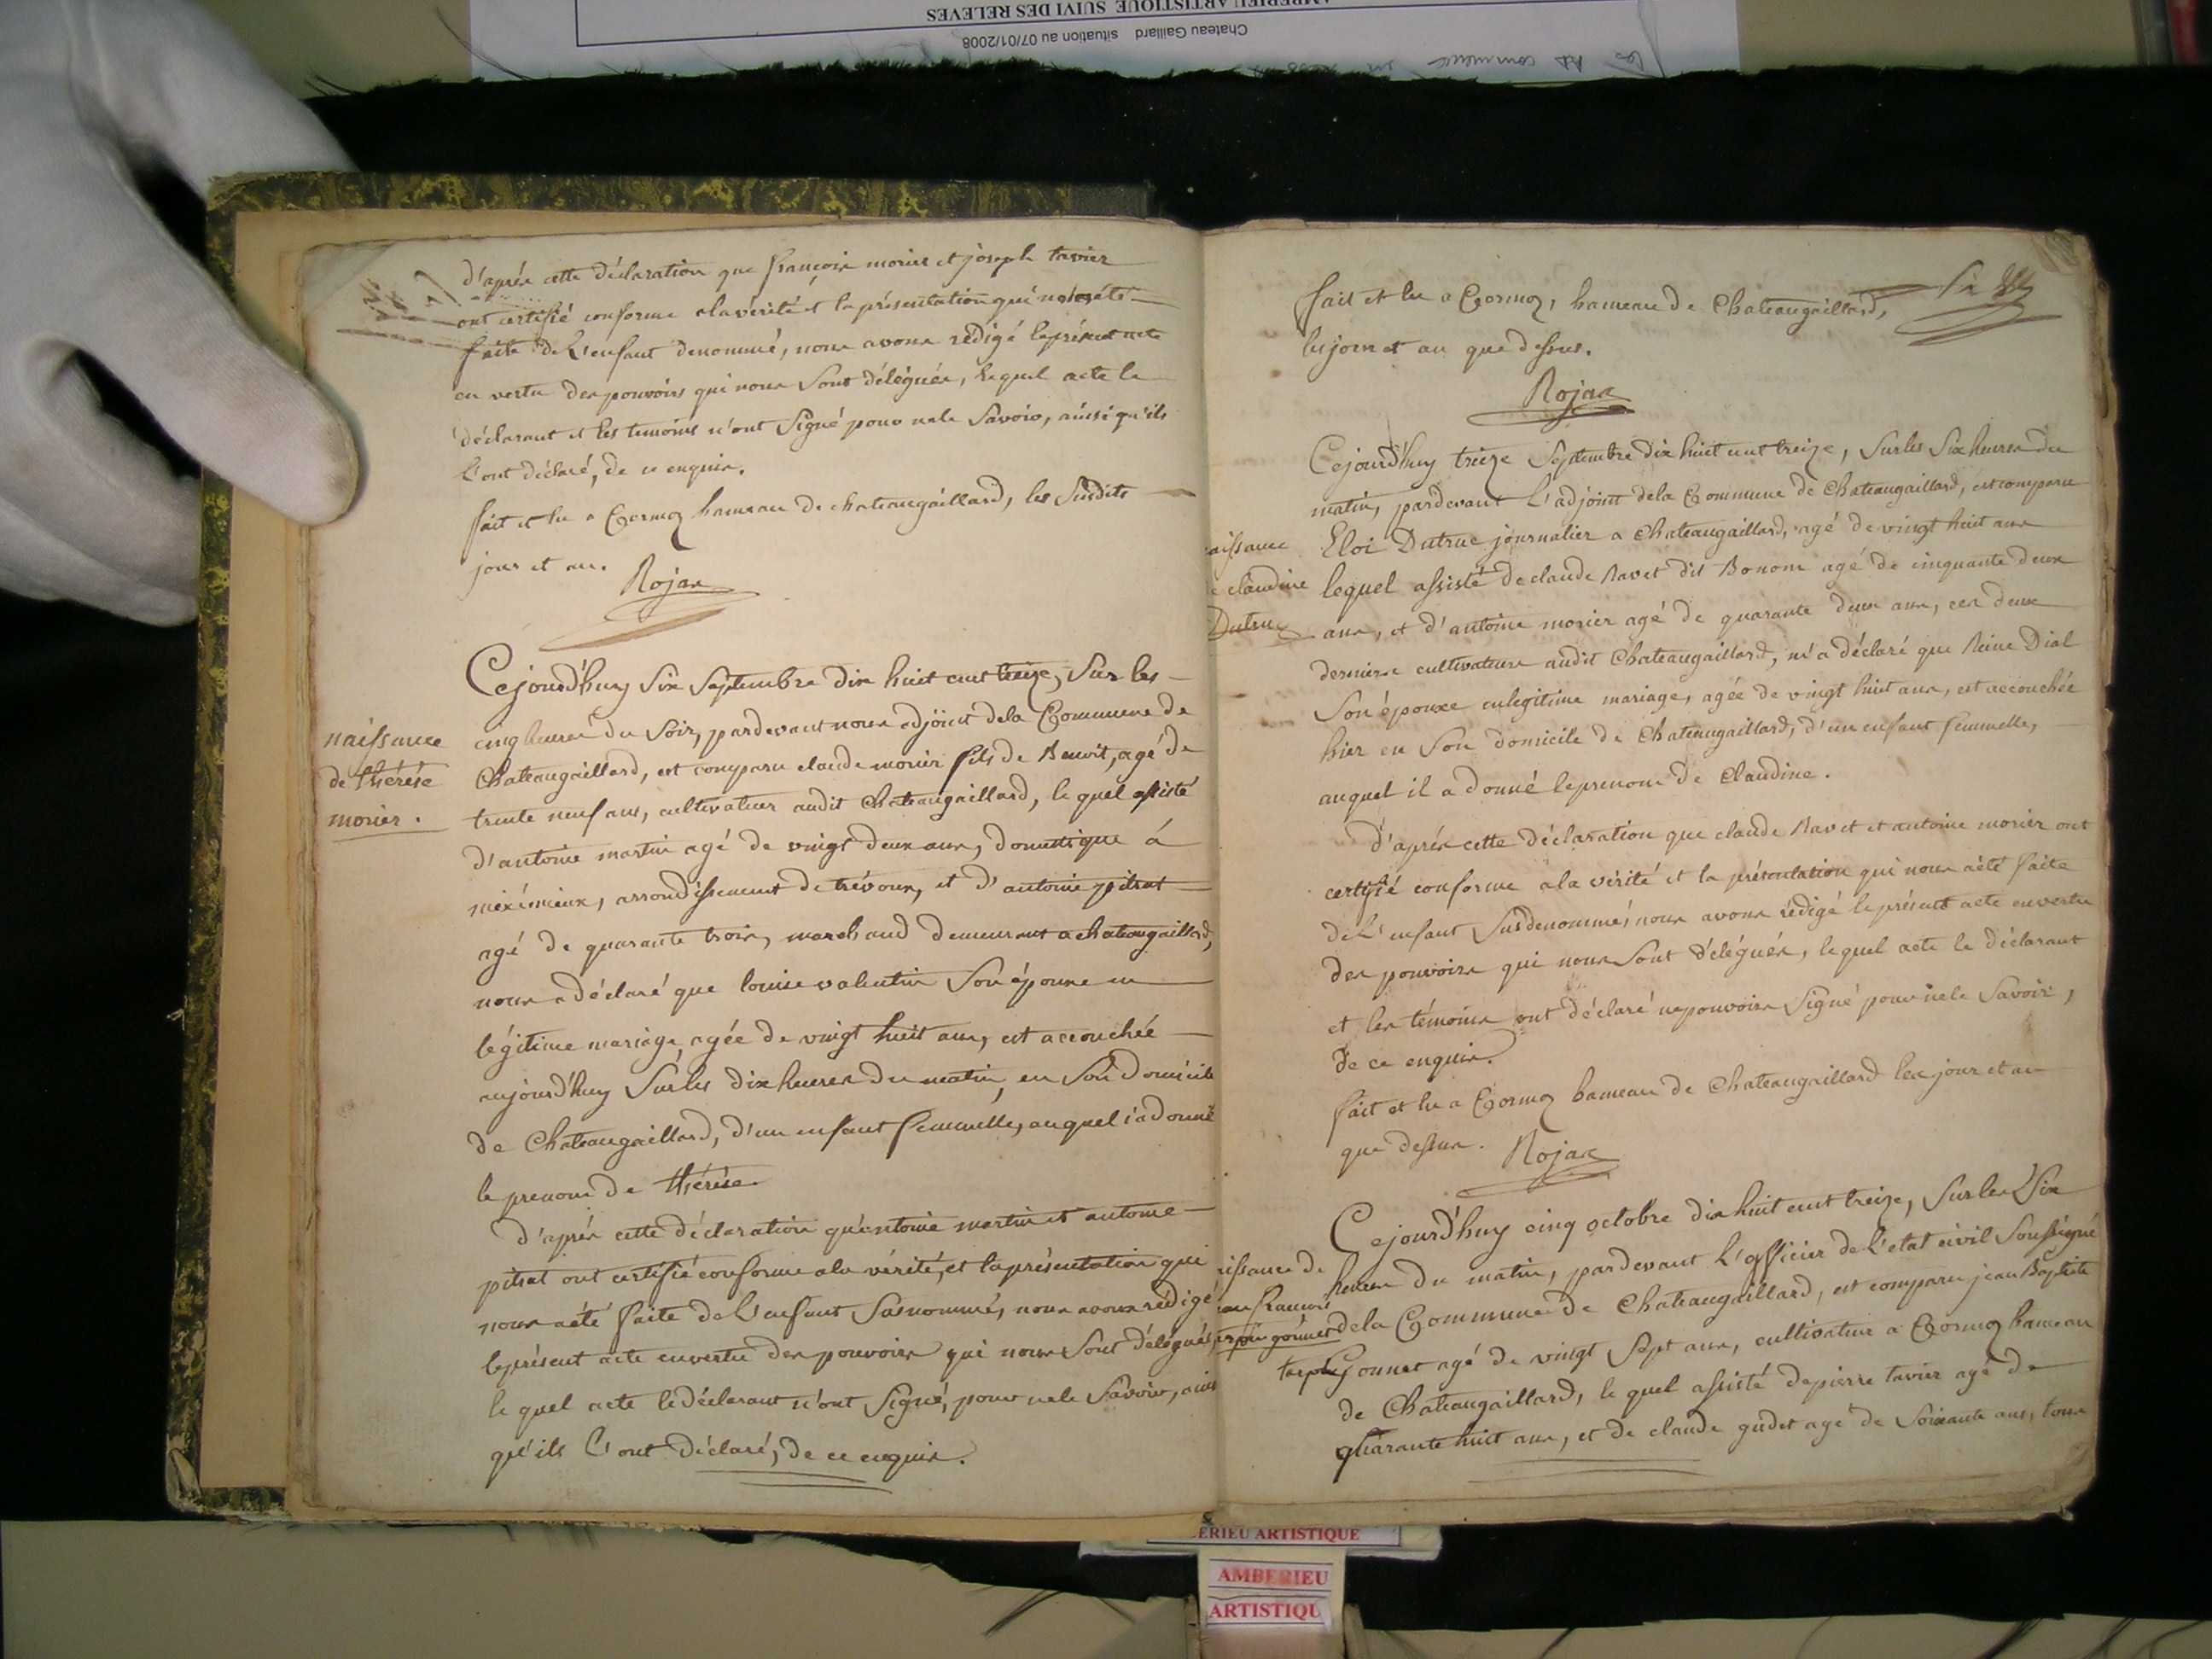 AMBERIEU ARTISTIQUE SUIVI DES RELEVES
Chateau Gaillard situation au 07/01/2008
d'après cette déclaration que françois morier et joseph tavier
ont certifié conforme alavérité et la présentation qui nous aété
faite de L'enfant denommé, nous avons rédigé leprésent acte
en vertu des pouvoirs qui nous Sont délégués, lequel acte le
déclarant et les temoins n'ont Signé pour nele Savoir, ainsi qu'ils
l'ont déclaré, de ce enquis.
fait et lu a Cormoz hameau de chateaugaillard, les Susdits
jour et an.
Rojas
naissance
de thérèse
morier.
Cejourd'huy Six Septembre dix huit cent treize, Sur les
cinq heures du Soir, pardevant nous adjoint dela Commune de
Chateaugaillard, est comparu claude morier fils de Benoit, agé de
trente neuf ans, cultivateur audit Chateaugaillard, le quel assisté
d'antoine martin agé de vingt deux ans, domestique á
méximieux, arrondissement de trévoux, et d'antoine pitrat
agé de quarante trois, marchand demeurant a chateaugaillard,
nous a déclaré que louise valentin Son épouse en
légitime mariage, agée de vingt huit ans, est accouchée
aujourd'huy Sur les dix heures du matin, en Son Domicile
de Chateaugaillard, d'un enfant femmelle, auquel i'a donné
le prenom de thérèse.
d'après cette déclaration qu'antoine martin et antoine
pitrat ont certifié conforme ala vérité, et la présentation qui
nous aété faite de L'enfant Susnommé, nous avons rédigé
leprésent acte envertu des pouvoirs qui nous Sont délégués,
le quel acte le déclarant n'ont Signé, pour nele Savoir, ains
qu'ils l'ont déclaré, de ce enquis.
fait et lu a Cormoz, hameau de Chateaugaillard,
les jour et an que dessus.
Rojas
aissance
e claudine
Dutruc
Cejourd'huy treize Septembre dix huit cent treize, Sur les Six heures du
matin, pardevant L'adjoint dela Commune de Chateaugaillard, est comparu
Eloi Dutruc journalier a Chateaugaillard, agé de vingt huit ans
lequel assisté de claude Ravet dit Bonom agé de cinquante deux
ans, et d'antoine morier agé de quarante deux ans, ces deux
derniers cultivateurs audit Chateaugaillard, m'a déclaré que Reine Dial
Son épouse enlegitime mariage, agée de vingt huit ans, est accouchée
hier en Son domicile de Chateaugaillard, d'un enfant femmelle,
auquel il a donné leprenom de Claudine.
d'après cette déclaration que claude Ravet et antoine morier ont
certifié conforme ala vérité et la présentation qui nous aété faite
de L'enfant Susdenommé, nous avons rédigé le présent acte envertu
des pouvoirs qui nous Sont délégués, lequel acte le déclarant
et les témoins ont déclaré nepouvoir Signé pour nele Savoir,
de ce enquis.
fait et lu a Cormoz hameau de Chateaugaillard les jour et an
que dessus.
Rojas
issance de
françois
gonnet
Cejourd'huy cinq octobre dix huit cent treize, Sur les Six
heures du matin, pardevant L'officier de L'etat civil Soussigné
dela Commune de Chateaugaillard, est comparu jean Baptiste
Gonnet agé de vingt Sept ans, cultivateur a Cormoz hameau
de Chateaugaillard, le quel assisté de pierre tavier agé de
quarante huit ans, et de claude gudet agé de Soixante ans, tous
ERIEU ARTISTIQUE
AMBERIEU
ARTISTIQU